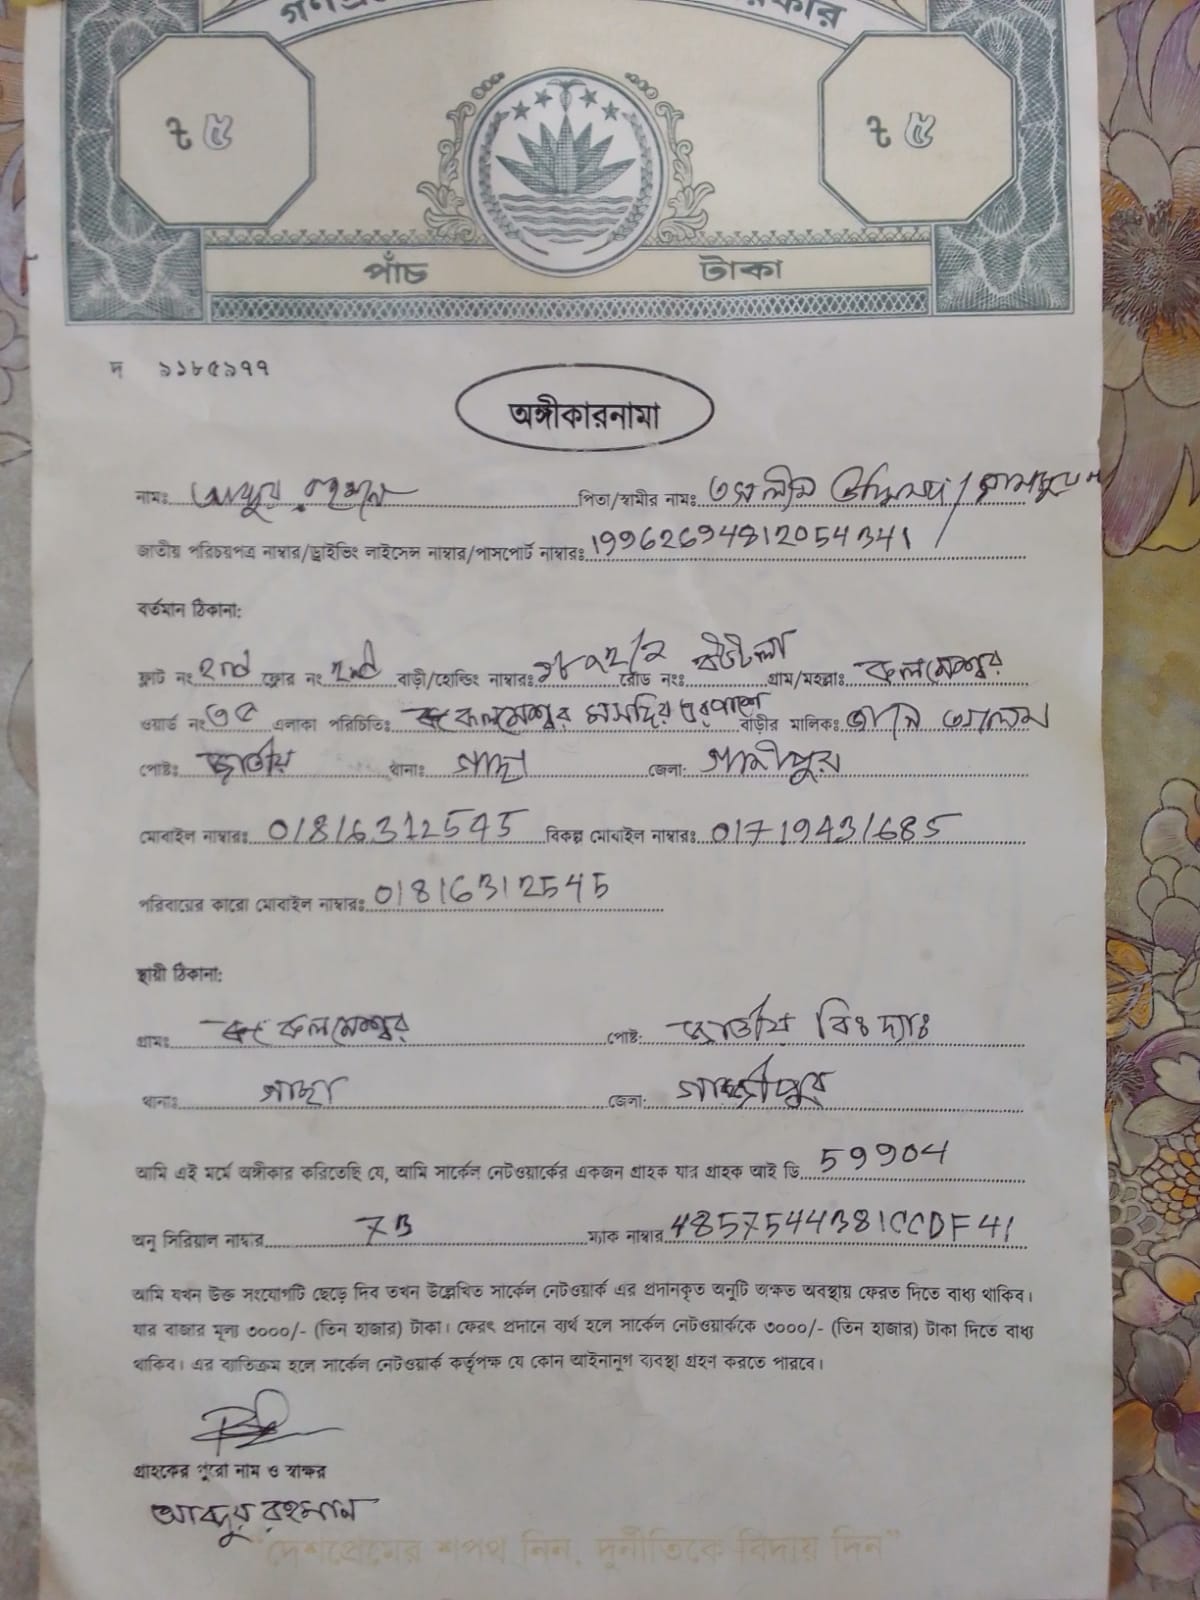 ৳ ৫ ৳ ৫
পাঁচ টাকা
দ ৯১৮৫৯৭৭
অঙ্গীকারনামা
নামঃ আব্দুর রহমান পিতা/স্বামীর নামঃ
জাতীয় পরিচয়পত্র নাম্বার/ড্রাইভিং লাইসেন্স নাম্বার/পাসপোর্ট নাম্বারঃ 19962694812054341
বর্তমান ঠিকানা:
ফ্লাট নং 2nd ফ্লোর নং 2nd বাড়ী/হোল্ডিং নাম্বারঃ রোড নংঃ গ্রাম/মহল্লাঃ কলমেশ্বর
ওয়ার্ড নং ৩৫ এলাকা পরিচিতিঃ কলমেশ্বর বাড়ীর মালিকঃ
পোষ্টঃ জাতীয় থানাঃ গাছা জেলা: গাজীপুর
মোবাইল নাম্বারঃ 01816312545 বিকল্প মোবাইল নাম্বারঃ 01719431685
পরিবারের কারো মোবাইল নাম্বারঃ 01816312545
স্থায়ী ঠিকানা:
গ্রামঃ কলমেশ্বর পোষ্ট: জাতীয় বিঃ দ্যাঃ
থানাঃ গাছা জেলা: গাজীপুর
আমি এই মর্মে অঙ্গীকার করিতেছি যে, আমি সার্কেল নেটওয়ার্কের একজন গ্রাহক যার গ্রাহক আই ডি 59904
অনু সিরিয়াল নাম্বার 7B ম্যাক নাম্বার 48575444381CCDF41
আমি যখন উক্ত সংযোগটি ছেড়ে দিব তখন উল্লেখিত সার্কেল নেটওয়ার্ক এর প্রদানকৃত অনুটি অক্ষত অবস্থায় ফেরত দিতে বাধ্য থাকিব।
যার বাজার মূল্য ৩০০০/- (তিন হাজার) টাকা। ফেরৎ প্রদানে ব্যর্থ হলে সার্কেল নেটওয়ার্ককে ৩০০০/- (তিন হাজার) টাকা দিতে বাধ্য
থাকিব। এর ব্যতিক্রম হলে সার্কেল নেটওয়ার্ক কর্তৃপক্ষ যে কোন আইনানুগ ব্যবস্থা গ্রহণ করতে পারবে।
গ্রাহকের পুরো নাম ও স্বাক্ষর
আব্দুর রহমান
"দেশপ্রেমের শপথ নিন, দুর্নীতিকে বিদায় দিন"